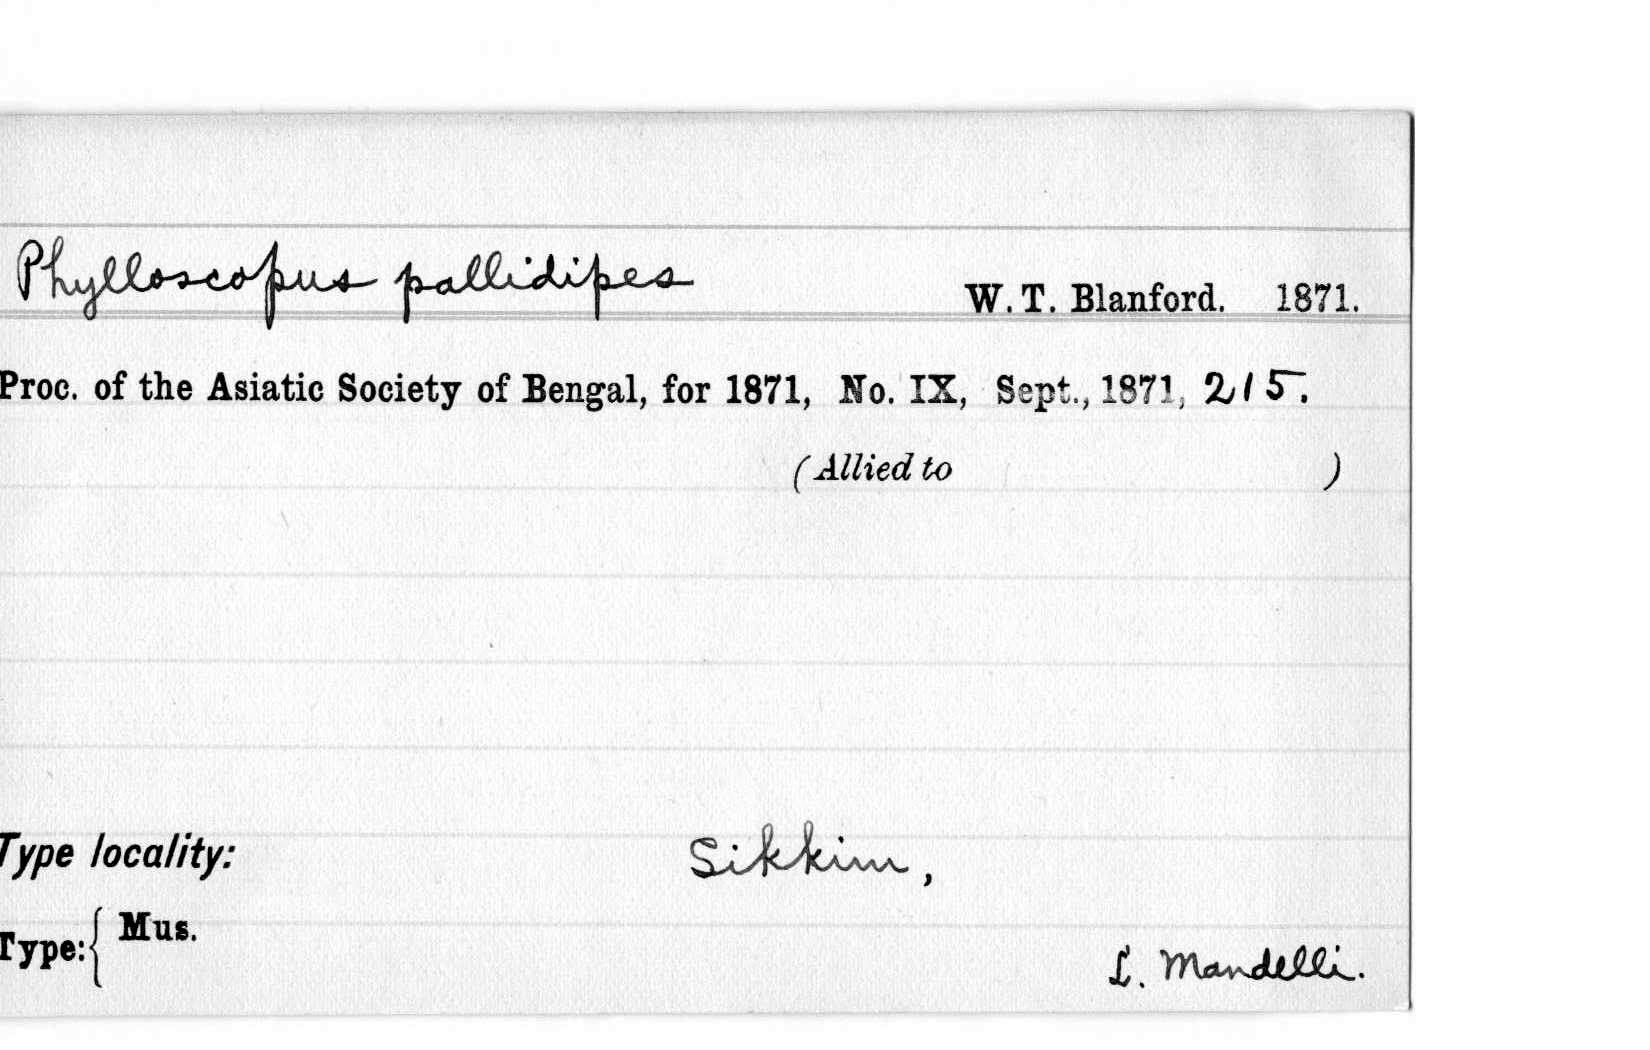 Phylloscopus pallidipes W. T. Blanford. 1871.
Proc. of the Asiatic Society of Bengal, for 1871, No. IX, Sept., 1871, 215.
(Allied to )
Type locality: Sikkim,
Type: { Mus.
L. Mandelli.